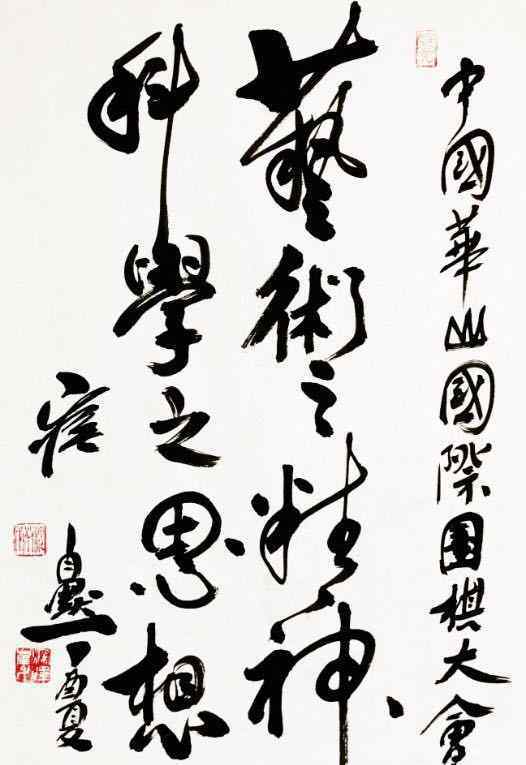 中國華山國際圍棋大會
藝術之精神
科學之思想
丁酉夏